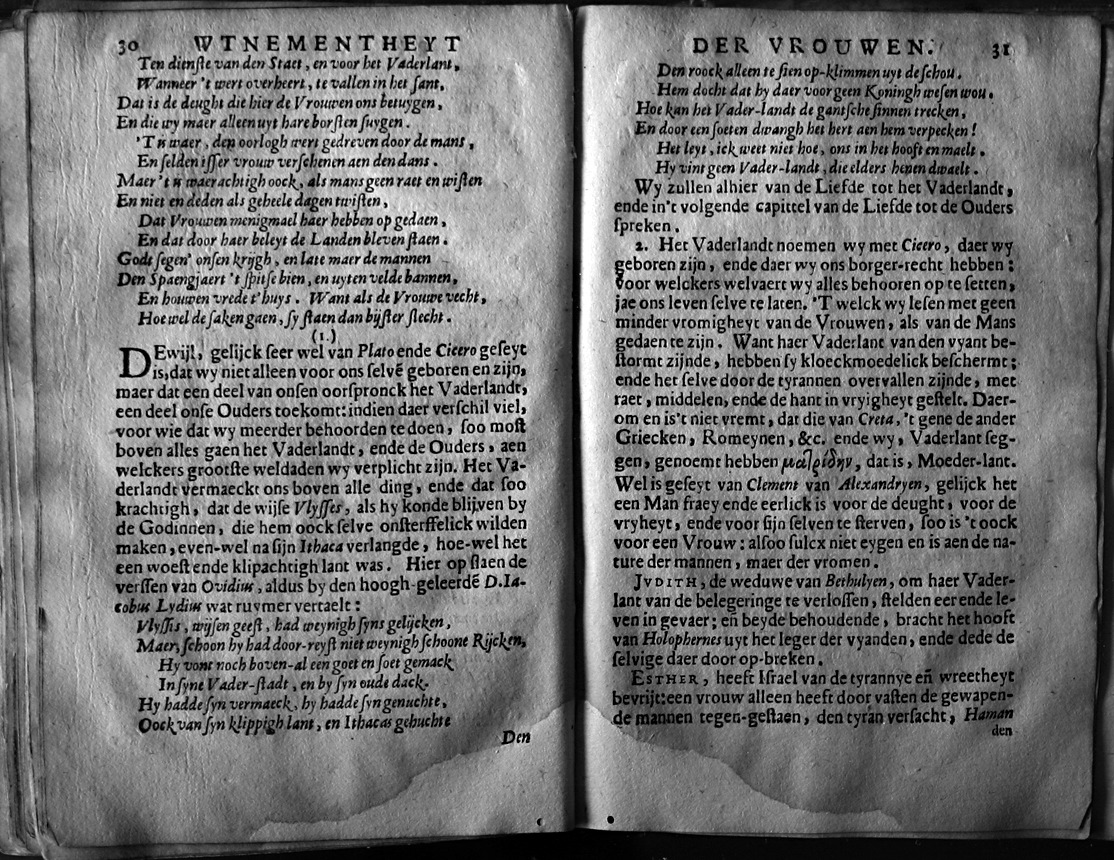 30 WTNEMENTHEYT
Ten dienste van den Staet, en voor het Vaderlant,
Wanneer 't wert overheert, te vallen in het sant,
Dat is de deught die hier de Vrouwen ons betuygen,
En die wy maer alleen uyt hare borsten suygen.
'T is waer, den oorlogh wert gedreven door de mans,
En selden isser vrouw verschenen aen den dans.
Maer 't is waerachtigh oock, als mans geen raet en wisten
En niet en deden als geheele dagen twisten,
Dat Vrouwen menigmael haer hebben op gedaen,
En dat door haer beleyt de Landen bleven staen.
Godt segen' onsen krijgh, en late maer de mannen
Den Spaengjaert 't spitse bien, en uyten velde bannen,
En houwen vrede t'huys. Want als de Vrouwe vecht,
Hoe wel de saken gaen, sy staen dan bijster slecht.
(1.)
DEwijl, gelijck seer wel van Plato ende Cicero geseyt
is, dat wy niet alleen voor ons selvẽ geboren en zijn,
maer dat een deel van onsen oorspronck het Vaderlandt,
een deel onse Ouders toekomt: indien daer verschil viel,
voor wie dat wy meerder behoorden te doen, soo most
boven alles gaen het Vaderlandt, ende de Ouders, aen
welckers grootste weldaden wy verplicht zijn. Het Va-
derlandt vermaeckt ons boven alle ding, ende dat soo
krachtigh, dat de wijse Vlysses, als hy konde blijven by
de Godinnen, die hem oock selve onsterffelick wilden
maken, even-wel na sijn Ithaca verlangde, hoe-wel het
een woest ende klipachtigh lant was. Hier op slaen de
verssen van Ovidius, aldus by den hoogh-geleerdẽ D. Ia-
cobus Lydius wat ruymer vertaelt:
Vlyssis, wijsen geest, had weynigh syns gelijcken,
Maer, schoon hy had door-reyst niet weynigh schoone Rijcken,
Hy vont noch boven-al een goet en soet gemack
In syne Vader-stadt, en by syn oude dack.
Hy hadde syn vermaeck, hy hadde syn genuchte,
Oock van syn klippigh lant, en Ithacas gehuchte
Den
DER VROUWEN. 31
Den roock alleen te sien op-klimmen uyt de schou.
Hem docht dat hy daer voor geen Koningh wesen wou.
Hoe kan het Vader-landt de gantsche sinnen trecken,
En door een soeten dwangh het hert aen hem verpecken!
Het leyt, ick weet niet hoe, ons in het hooft en maelt.
Hy vint geen Vader-landt, die elders henen dwaelt.
Wy zullen alhier van de Liefde tot het Vaderlandt,
ende in't volgende capittel van de Liefde tot de Ouders
spreken.
2. Het Vaderlandt noemen wy met Cicero, daer wy
geboren zijn, ende daer wy ons borger-recht hebben:
voor welckers welvaert wy alles behooren op te setten,
jae ons leven selve te laten. 'T welck wy lesen met geen
minder vromigheyt van de Vrouwen, als van de Mans
gedaen te zijn. Want haer Vaderlant van den vyant be-
stormt zijnde, hebben sy kloeckmoedelick beschermt;
ende het selve door de tyrannen overvallen zijnde, met
raet, middelen, ende de hant in vryigheyt gestelt. Daer-
om en is't niet vremt, dat die van Creta, 't gene de ander
Griecken, Romeynen, &c. ende wy, Vaderlant seg-
gen, genoemt hebben μαῖρίδην, dat is, Moeder-lant.
Wel is geseyt van Clement van Alexandryen, gelijck het
een Man fraey ende eerlick is voor de deught, voor de
vryheyt, ende voor sijn selven te sterven, soo is 't oock
voor een Vrouw: alsoo sulcx niet eygen en is aen de na-
ture der mannen, maer der vromen.
JVDITH, de weduwe van Bethulyen, om haer Vader-
lant van de belegeringe te verlossen, stelden eer ende le-
ven in gevaer; eñ beyde behoudende, bracht het hooft
van Holophernes uyt het leger der vyanden, ende dede de
selvige daer door op-breken.
ESTHER, heeft Israel van de tyrannye eñ wreetheyt
bevrijt: een vrouw alleen heeft door vasten de gewapen-
de mannen tegen-gestaen, den tyran versacht, Haman
den